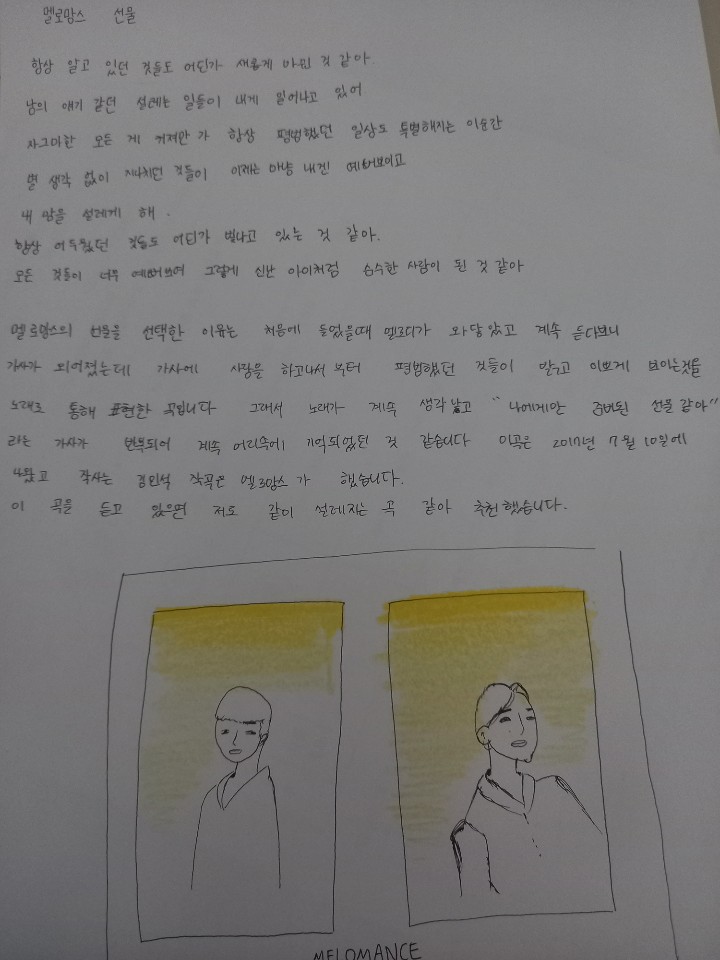 멜로망스 선물
항상 알고 있던 것들도 어딘가 새롭게 바뀐 것 같아
남의 얘기 같던 설레는 일들이 내게 일어나고 있어
자그마한 모든 게 커져만 가 항상 평범했던 일상도 특별해지는 이순간
별 생각 없이 지나치던 것들이 이제는 마냥 내겐 예뻐보이고
내 맘을 설레게 해.
항상 어두웠던 것들도 어딘가 빛나고 있는 것 같아.
모든 것들이 너무 예뻐보여 그렇게 신난 아이처럼 순수한 사람이 된 것 같아
멜로망스의 선물을 선택한 이유는 처음에 들었을때 멜로디가 와닿았고 계속 듣다보니
가사가 되어졌는데 가사에 사랑을 하고나서부터 평범했던 것들이 이쁘게 보이는것을
노래로 통해 표현한 곡입니다 그래서 노래가 계속 생각났고 "나에게만 준비된 선물같아"
라는 가사가 반복되어 계속 머리속에 기억되었던 것 같습니다 이곡은 2017년 7월 10일에
나왔고 작사는 김민석 작곡은 멜로망스가 했습니다.
이 곡을 듣고 있으면 저도 같이 설레지는 곡 같아 추천했습니다.
MELOMANCE